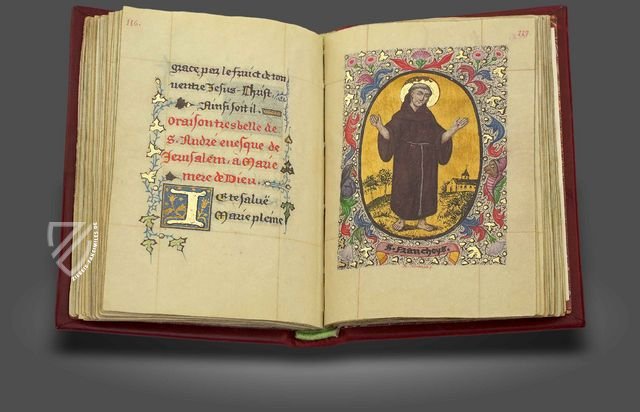 116.
grace par le fruict de ton
ventre Jesus-Christ.
Ainsi soit il.
Oraison tres belle de
S. André evesque de
Jerusalem, a Marie
mere de Dieu.
Te te saluë
Marie pleine
117.
S. Francheys.
ZIEREIS-FAKSIMILES.DE